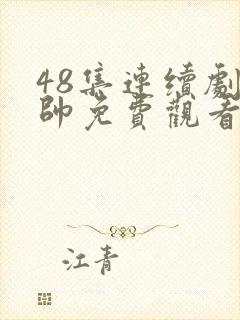 48集連續劇
帥免費觀看
江青